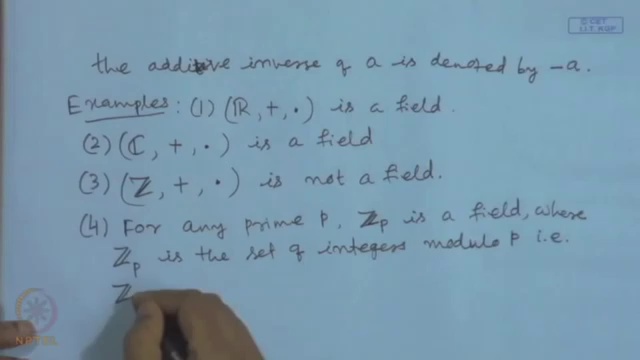 © CET
I.I.T. KGP
the additive inverse of a is denoted by -a.
Examples: (1) (ℝ, +, ·) is a field.
(2) (ℂ, +, ·) is a field
(3) (ℤ, +, ·) is not a field.
(4) For any prime p, ℤp is a field, where
ℤp is the set of integers modulo p i.e.
ℤ
NPTEL